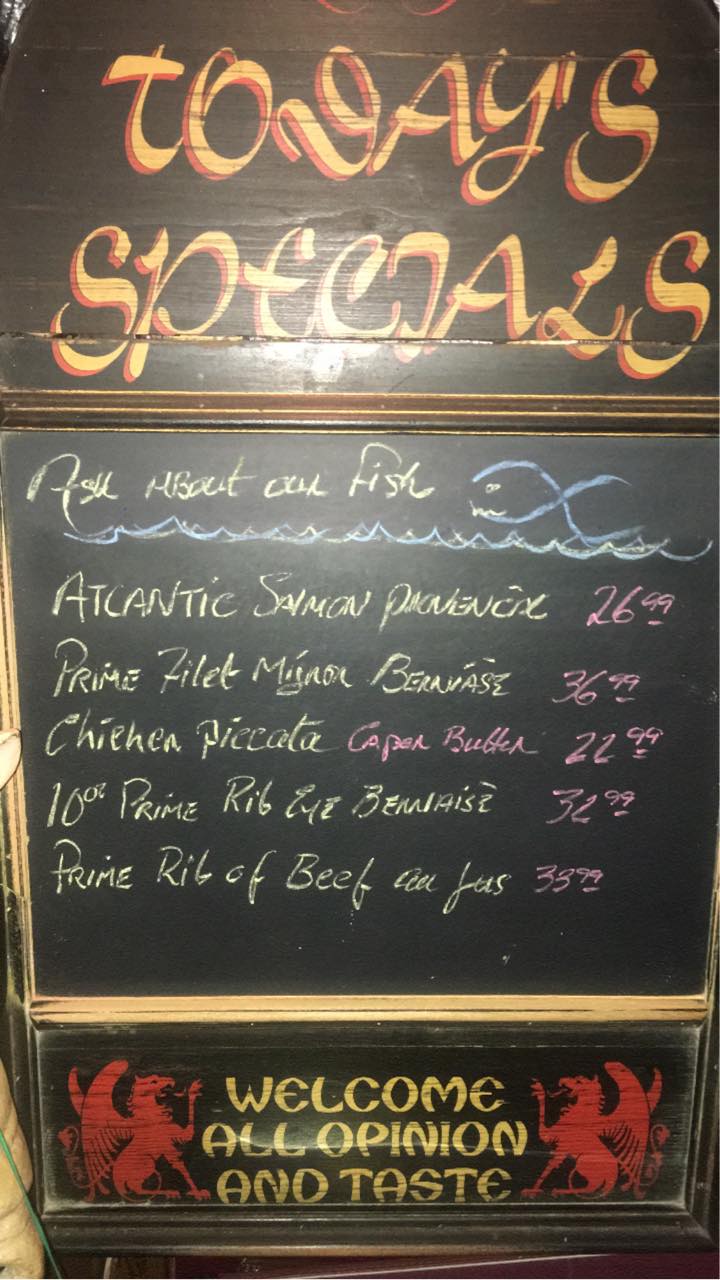 TODAY'S
SPECIALS
Ask About our Fish
ATLANTIC SALMON PROVENÇAL 26 99
PRIME Filet Mignon BERNAISE 36 99
Chicken Piccata Caper Butter 22 99
10oz PRIME Rib EYE BERNAISE 32 99
PRIME Rib of Beef au jus 33 99
WELCOME
ALL OPINION
AND TASTE